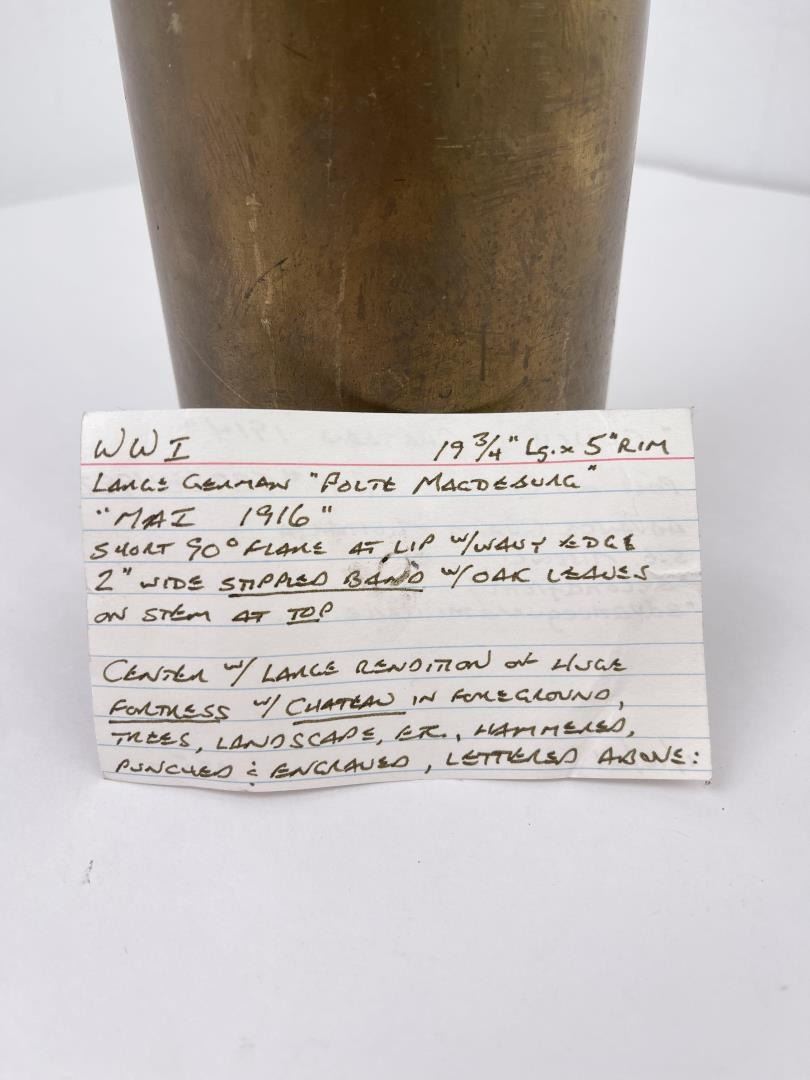 WWI 19 3/4" Lg. x 5" RIM
LARGE GERMAN "POLTE MAGDEBURG"
"MAI 1916"
SHORT 90° FLARE AT LIP W/WAVY EDGE
2" WIDE STIPPLED BAND W/OAK LEAVES
ON STEM AT TOP
CENTER W/ LARGE RENDITION OF HUGE
FORTRESS W/ CHATEAU IN FOREGROUND,
TREES, LANDSCAPE, ETC., HAMMERED,
PUNCHED & ENGRAVED, LETTERED ABOVE: